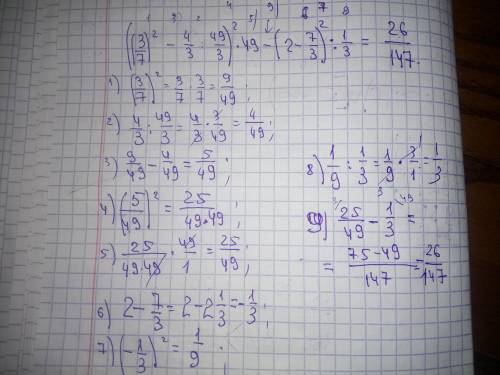 1 3) 2 4 5) 6 7 8
((3/7)² − 4/3 : 49/3)² · 49 − (2 − 7/3)² : 1/3 = 26/147
1) (3/7)² = 3/7 · 3/7 = 9/49;
2) 4/3 : 49/3 = 4/3 · 3/49 = 4/49;
3) 9/49 − 4/49 = 5/49;
4) (5/49)² = 25/49·49;
5) 25/49·49 · 49/1 = 25/49;
6) 2 − 7/3 = 2 − 2 1/3 = −1/3;
7) (−1/3)² = 1/9;
8) 1/9 : 1/3 = 1/9 · 3/1 = 1/3
9) 25/49 − 1/3 =
= 75−49/147 = 26/147